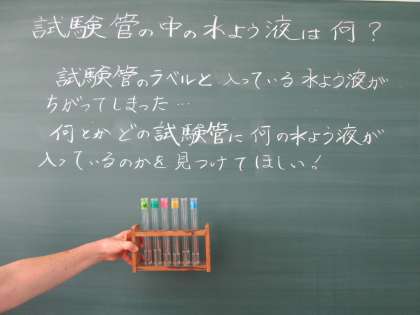 試験管の中の水よう液は何？
試験管のラベルと入っている水よう液が
ちがってしまった…
何とかどの試験管に何の水よう液が
入っているのかを見つけてほしい！